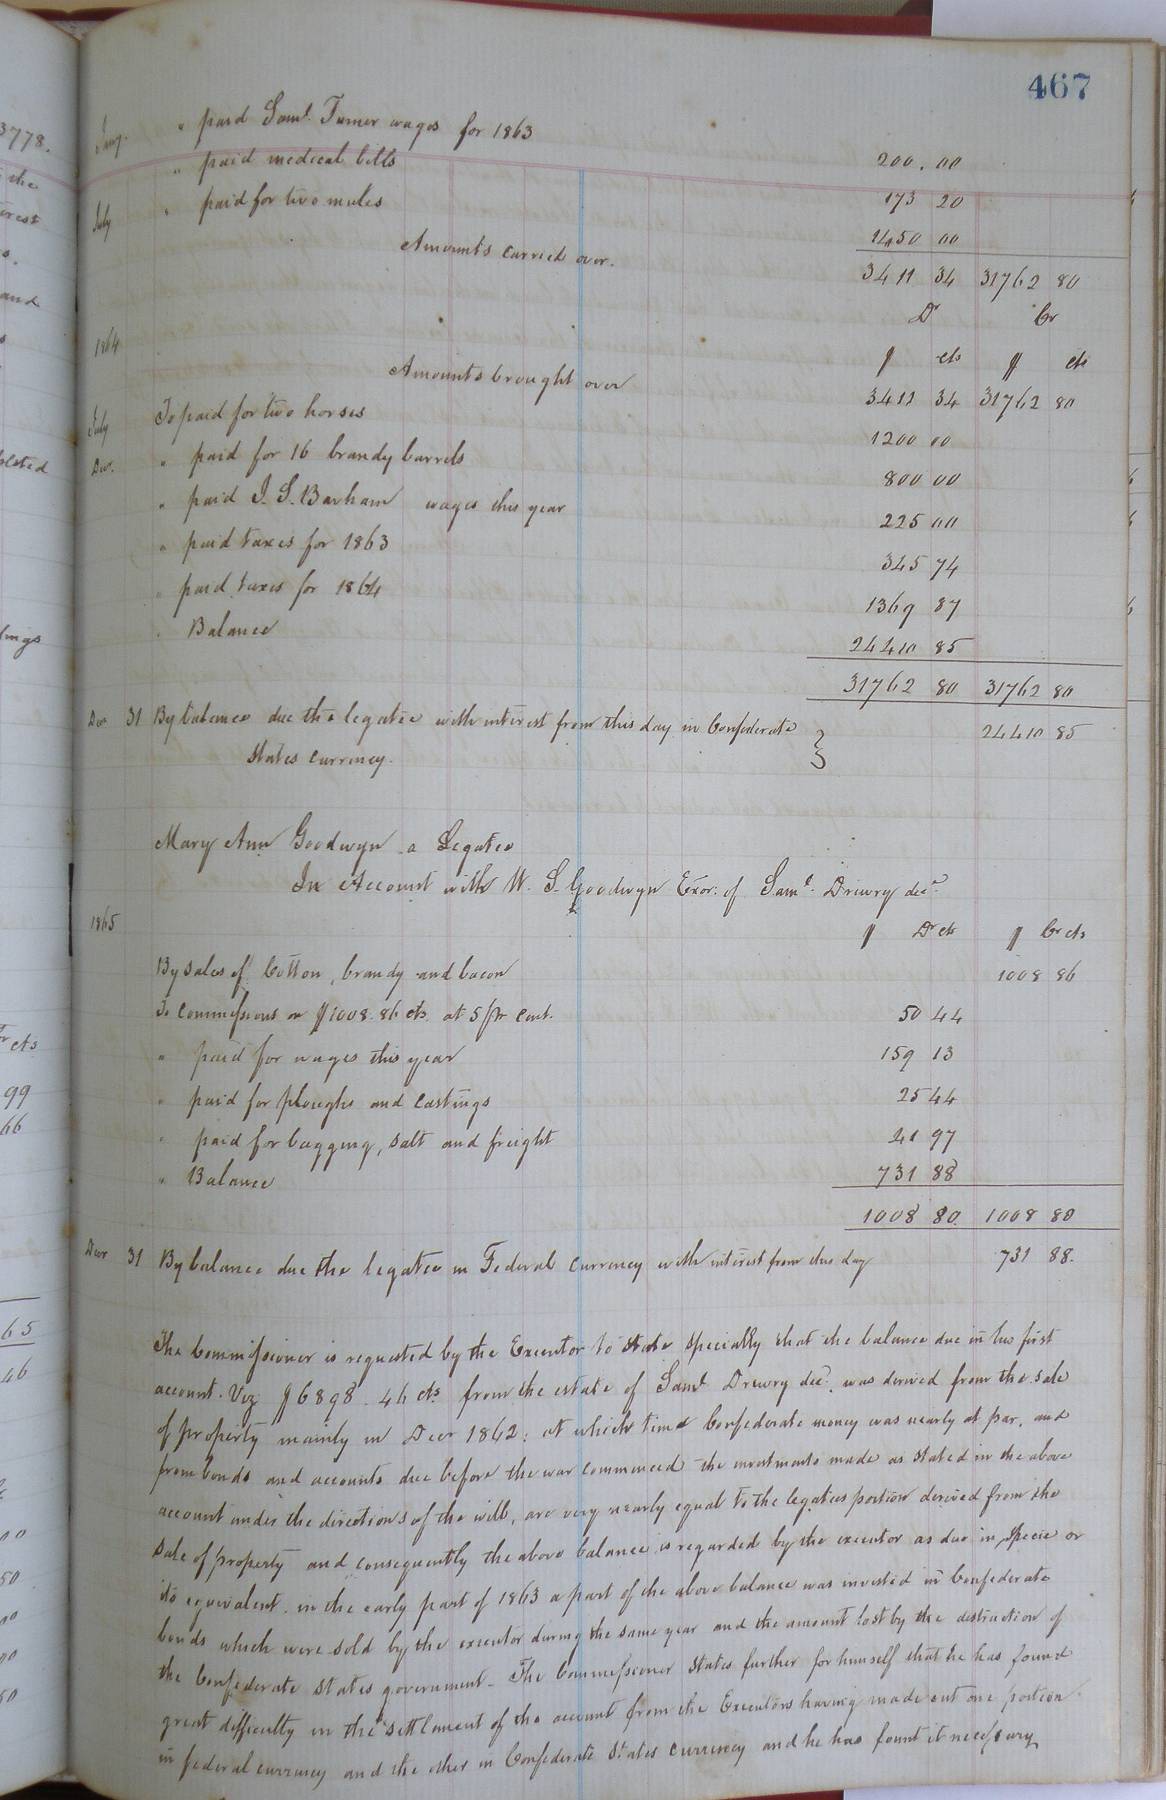 467
Jany. " paid Saml. Turner wages for 1863 200.00
" paid medical bills 173 20
July " paid for two mules 1450 00
Amounts carried over. 3411 34 31762 80
Dr Cr
1864 $ cts $ cts
Amounts brought over 3411 34 31762 80
July To paid for two horses 1200 00
Decr. " paid for 16 brandy barrels 800 00
" paid J. S. Barham wages this year 225 00
" paid taxes for 1863 345 74
" paid taxes for 1864 1369 87
" Balance 24410 85
31762 80 31762 80
Decr 31 By balance due the legatee with interest from this day in Confederate 24410 85
States Currency.
Mary Ann Goodwyn a Legatee
In Account with W. S. Goodwyn Exor. of Saml. Drewry decd.
1865 $ Dr cts $ Cr cts
By sales of Cotton, brandy and bacon 1008 86
To Commissions on $1008.86 cts. at 5 pr cent. 50 44
" paid for wages this year 159 13
" paid for ploughs and castings 25 44
" paid for bagging, salt and freight 41 97
" Balance 731 88
1008 80 1008 80
Decr 31 By balance due the legatee in Federal currency with interest from this day 731 88.
The Commissioner is requested by the Executor to state specially that the balance due in his first
account. Viz $6898.46 cts. from the estate of Saml. Drewry decd. was derived from the sale
of property mainly in Decr 1862; at which time Confederate money was nearly at par, and
from bonds and accounts due before the war commenced the investments made as stated in the above
account under the directions of the will, are very nearly equal to the legatees portion derived from the
sale of property and consequently the above balance is regarded by the executor as due in specie or
its equivalent. in the early part of 1863 a part of the above balance was invested in Confederate
bonds which were sold by the executor during the same year and the amount lost by the distruction of
the Confederate States government - The Commissioner states further for himself that he has found
great difficulty in the settlement of the account from the Executors having made out one portion
in federal currency and the other in Confederate States currency and he has fount it necessary